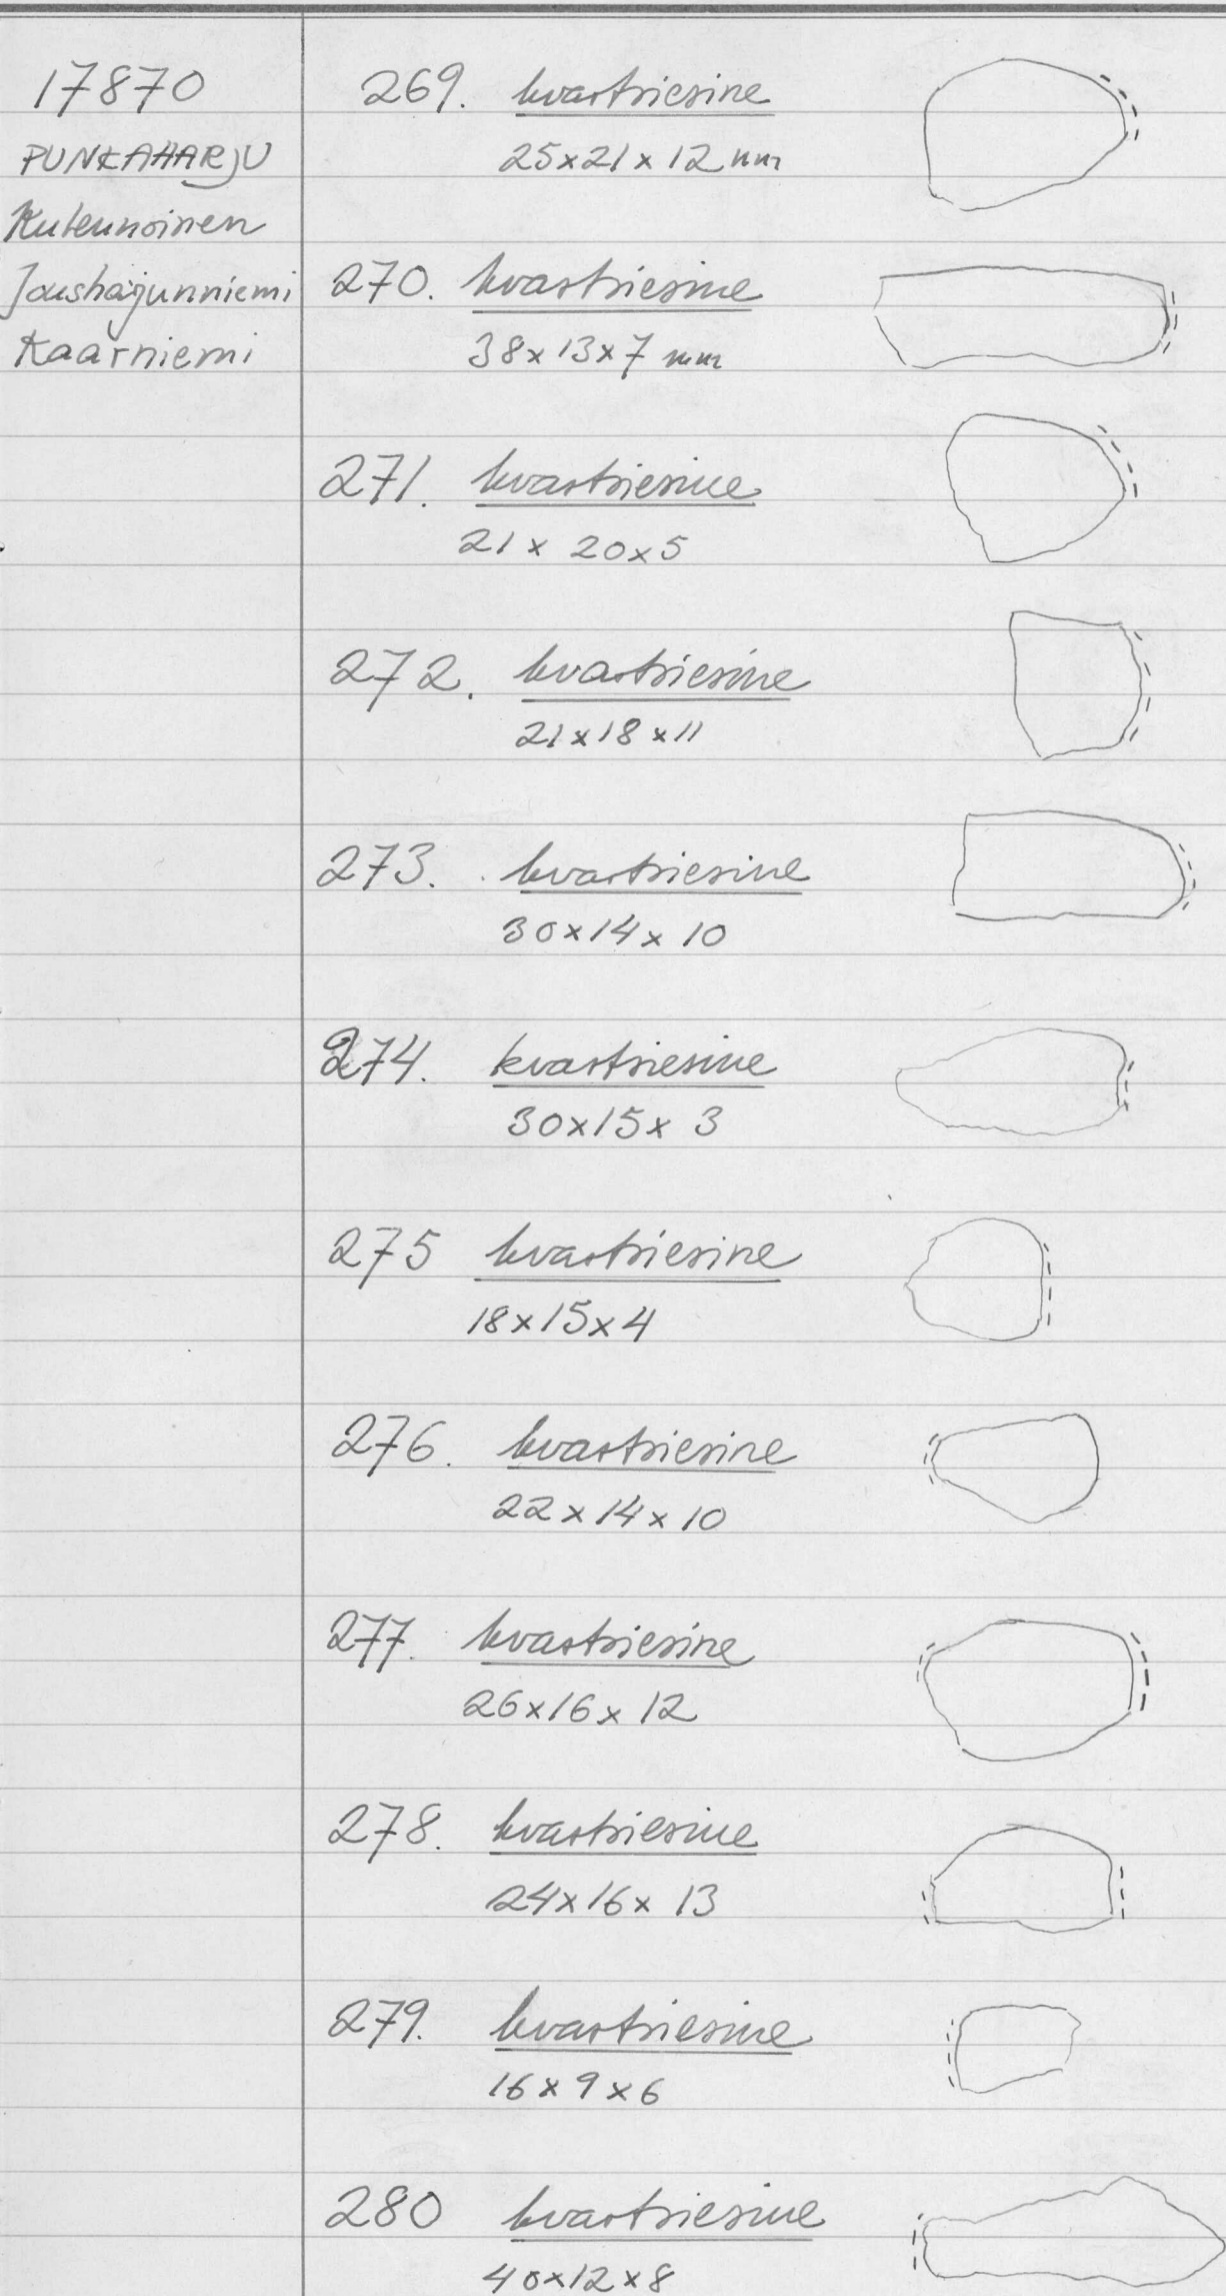 17870
PUNKAHARJU
Kulennoinen
Joushäjunniemi
Kaarniemi
269. kvartsiesine
25x21x12 mm
270. kvartsiesine
38x13x7 mm
271. kvartsiesine
21x20x5
272. kvartsiesine
21x18x11
273. kvartsiesine
30x14x10
274. kvartsiesine
30x15x3
275 kvartsiesine
18x15x4
276. kvartsiesine
22x14x10
277. kvartsiesine
26x16x12
278. kvartsiesine
24x16x13
279. kvartsiesine
16x9x6
280 kvartsiesine
40x12x8